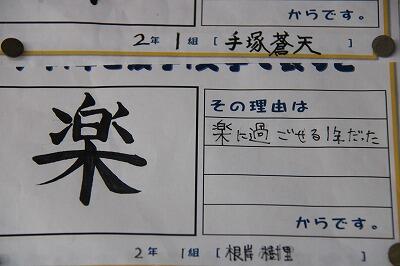 からです。
2年 1組 [手塚蒼天]
楽
その理由は
楽に過ごせる1年だった
からです。
2年 1組 [根岸樹里]